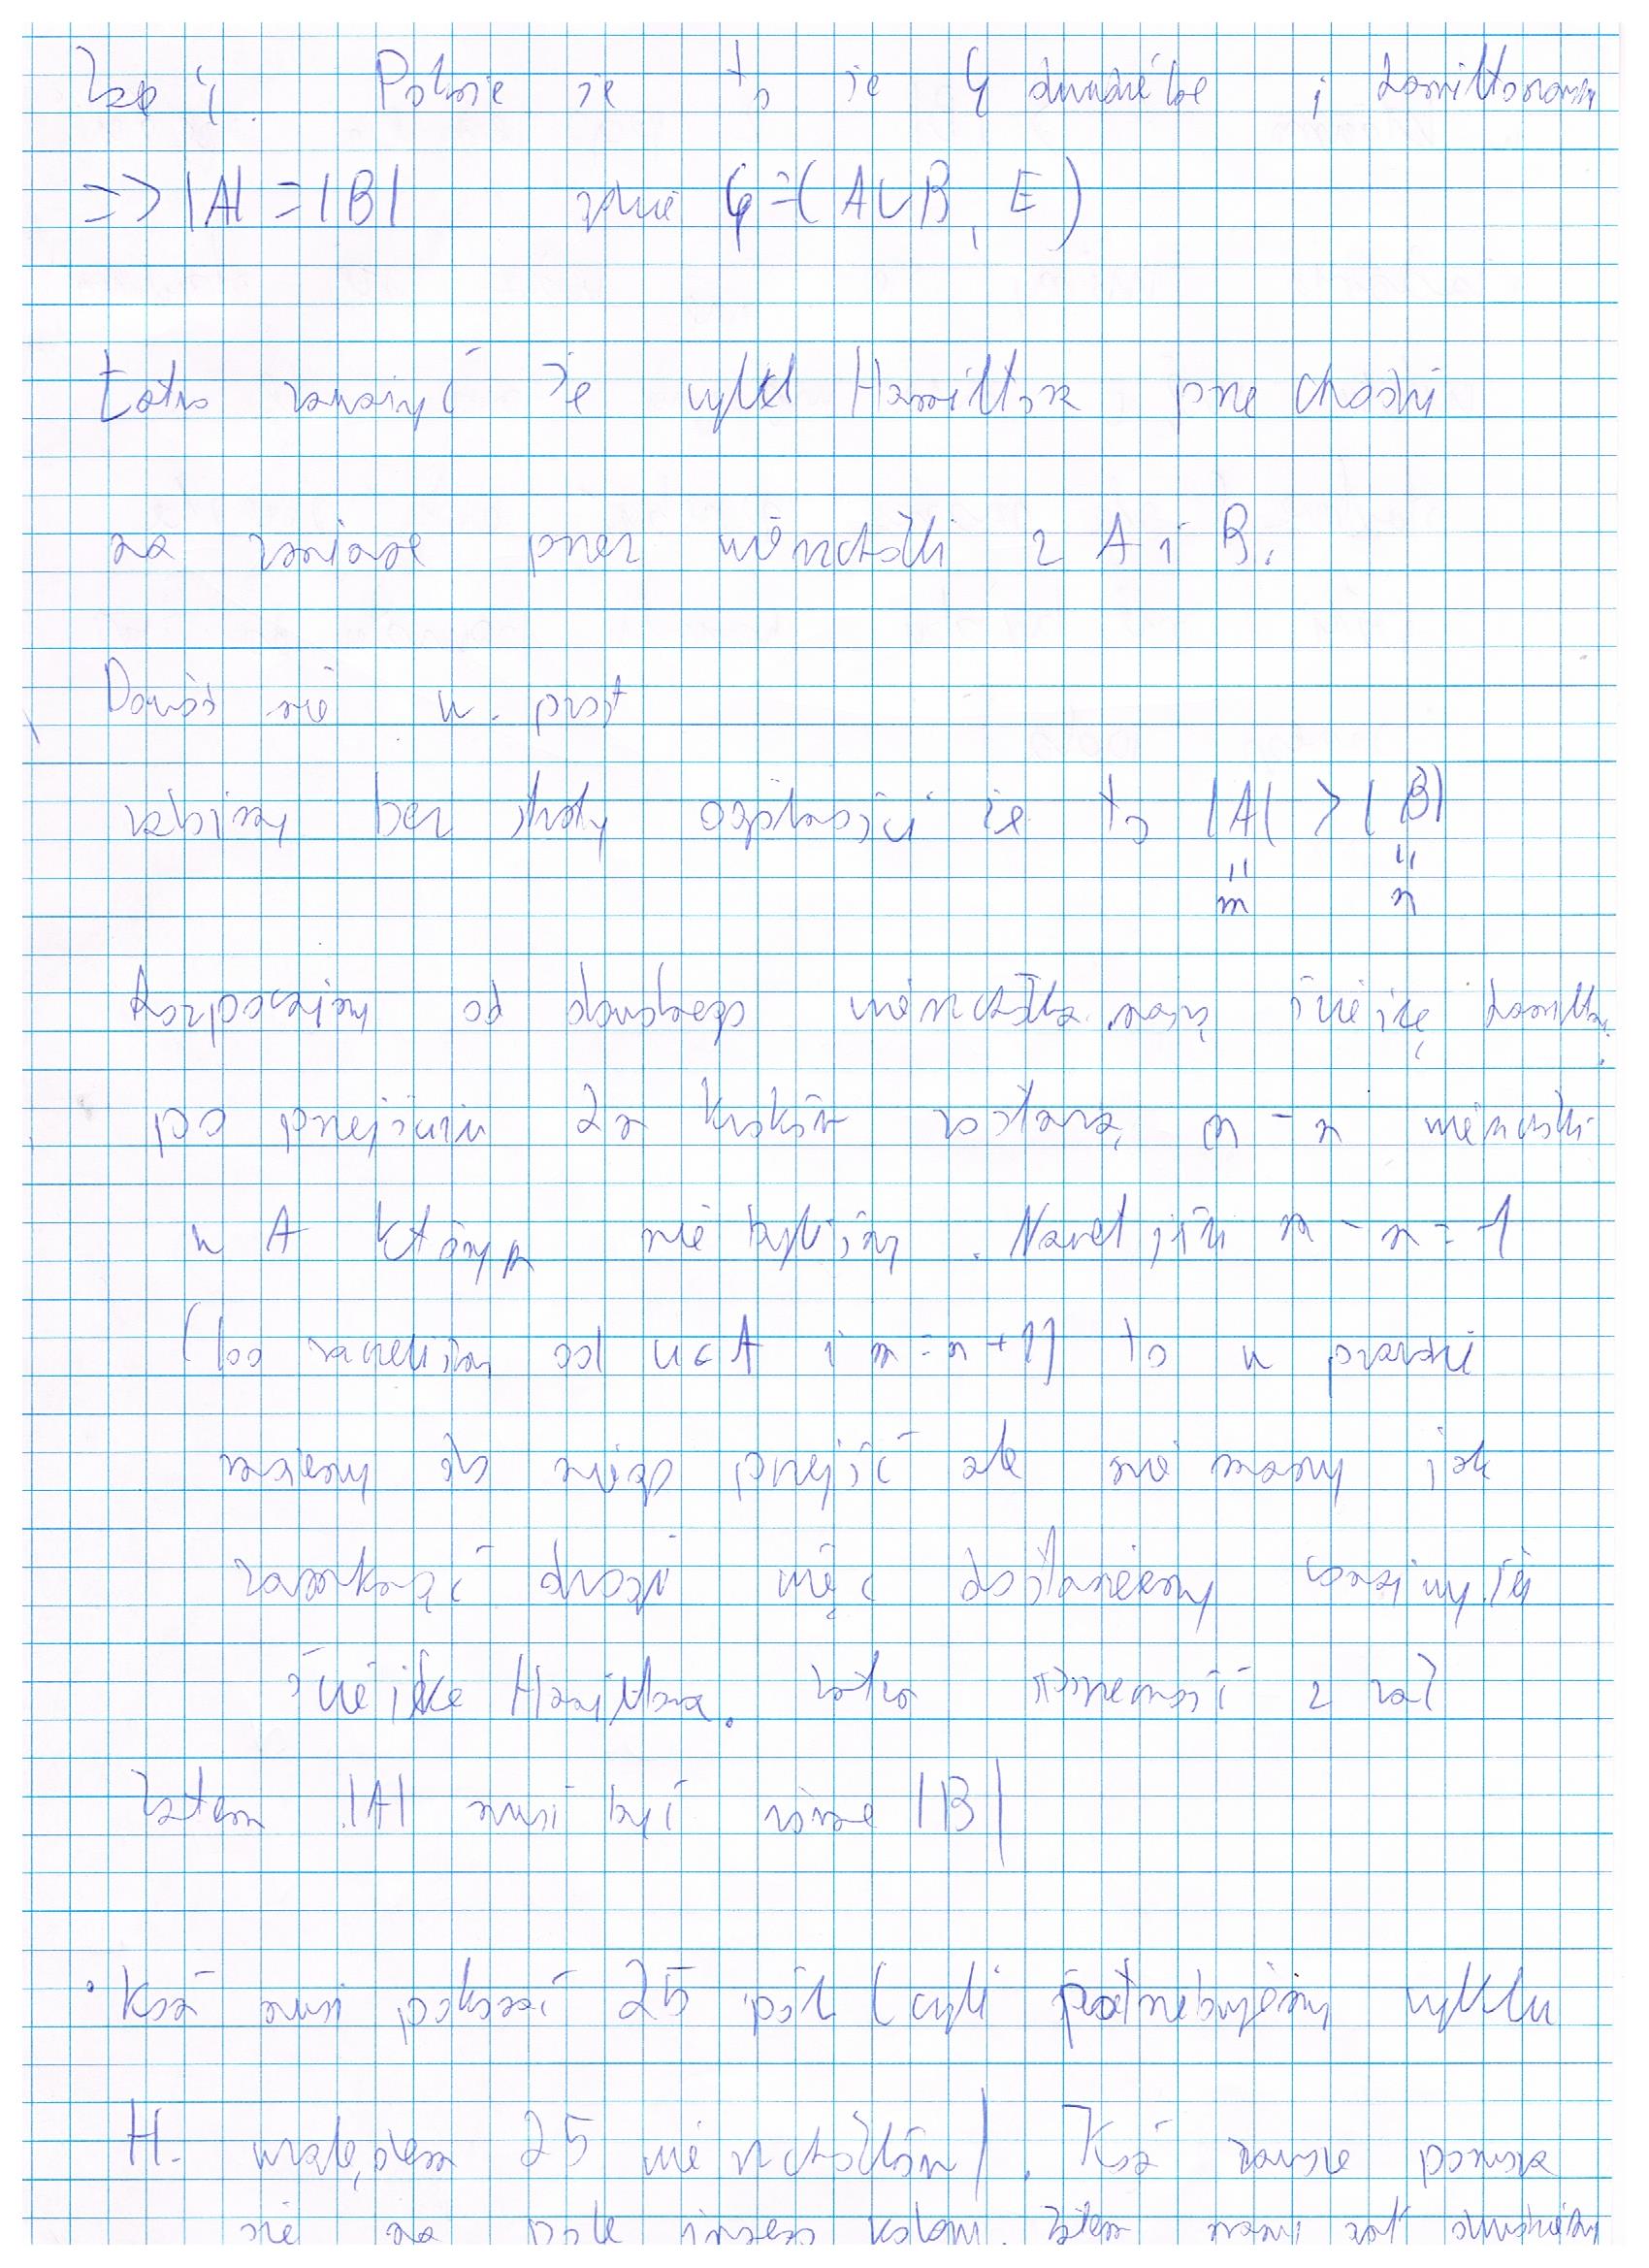 Pokaże że to że G dwudzielne i hamiltonowski
=> |A| = |B| G = (A ∪ B, E)
Łatwo zauważyć że cykl Hamiltona przechodzi
na zmianę przez wierzchołki z A i B.
Dowód nie w. prost
załóżmy bez straty ogólności że to |A| > |B|
m n
Rozpocznijmy od dowolnego wierzchołka naszą ścieżkę
po przejściu 2n kroków zostaną m - n wierzchołki
w A których nie byliśmy. Nawet jeśli m - n = 1
(bo zaczeliśmy od u ∈ A i m = n + 1) to w prawdzie
możemy do niego przejść ale nie mamy jak
zamknąć drogi więc dostaniemy
ścieżke Hamiltona. sprzeczność z zał
Zatem |A| musi być równe |B|
• Koń musi pokonać 25 pól (czyli potrzebujemy cyklu
H. względem 25 wierzchołków). Koń zawsze porusza
się na pole innego koloru. Zatem mamy graf dwudzielny